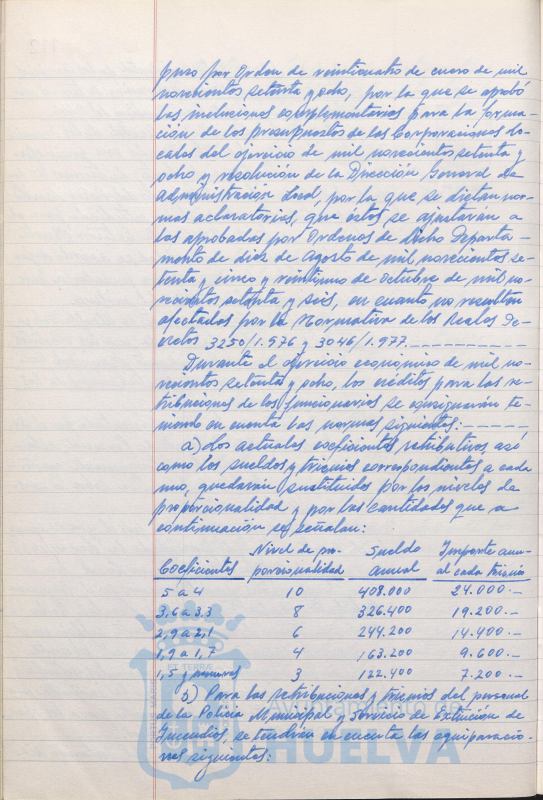 puso por Orden de veinticuatro de enero de mil
novecientos setenta y ocho, por la que se aprobó
las inclusiones complementarias para la forma-
ción de los presupuestos de las Corporaciones lo-
cales del ejercicio de mil novecientos setenta y
ocho y resolución de la Dirección General de
Administración Local, por la que se dictan nor-
mas aclaratorias, que éstos se ajustaran a
las aprobadas por Ordenes de dicho Departa-
mento de diez de Agosto de mil novecientos se-
tenta y cinco y veintiuno de octubre de mil no-
vecientos setenta y seis, en cuanto no resulten
afectadas por la Normativa de los Reales De-
cretos 3250/1.976 y 3046/1.977.
Durante el ejercicio económico de mil no-
vecientos setenta y ocho, los créditos para las re-
tribuciones de los funcionarios se consignarán te-
niendo en cuenta las normas siguientes:
a) Los actuales coeficientes retributivos, así
como los sueldos y trienios correspondientes a cada
uno, quedarán sustituidos por los niveles de
proporcionalidad y por las cantidades que a
continuación se señalan:
Coeficientes Nivel de pro-porcionalidad Sueldo anual Importe anu-al cada trienio
5 a 4 10 408.000 24.000.-
3,6 a 3,3 8 326.400 19.200.-
2,9 a 2,1 6 244.200 14.400.-
1,9 a 1,7 4 163.200 9.600.-
1,5 y 3 122.400 7.200.-
b) Para las retribuciones y trienios del personal
de la Policía Municipal y Servicio de Extinción de
Incendios, se tendrán en cuenta las equiparacio-
nes siguientes:
Ayuntamiento de
HUELVA